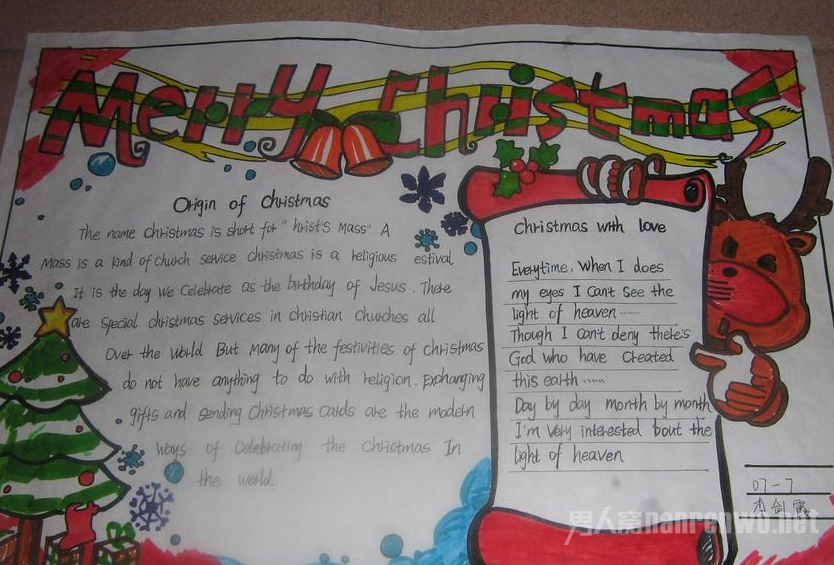 Merry Christmas
Origin of Christmas
The name Christmas is short for "hrist's Mass" A
Mass is a kind of church service christmas is a religious estival
It is the day we celebrate as the birthday of Jesus. There
are special christmas services in christian churches all
Over the world But many of the festivities of christmas
do not have anything to do with religion. Exchanging
gifts and sending Christmas cards are the modern
ways of Celebrating the Christmas In
the world.
Christmas with love
Everytime, When I does
my eyes I Can't see the
light of heaven ......
Though I can't deny there's
God who have Created
this earth ......
Day by day month by month
I'm very interested 'bout the
light of heaven
07-7
李剑霞
男人窝nanrenwo.net